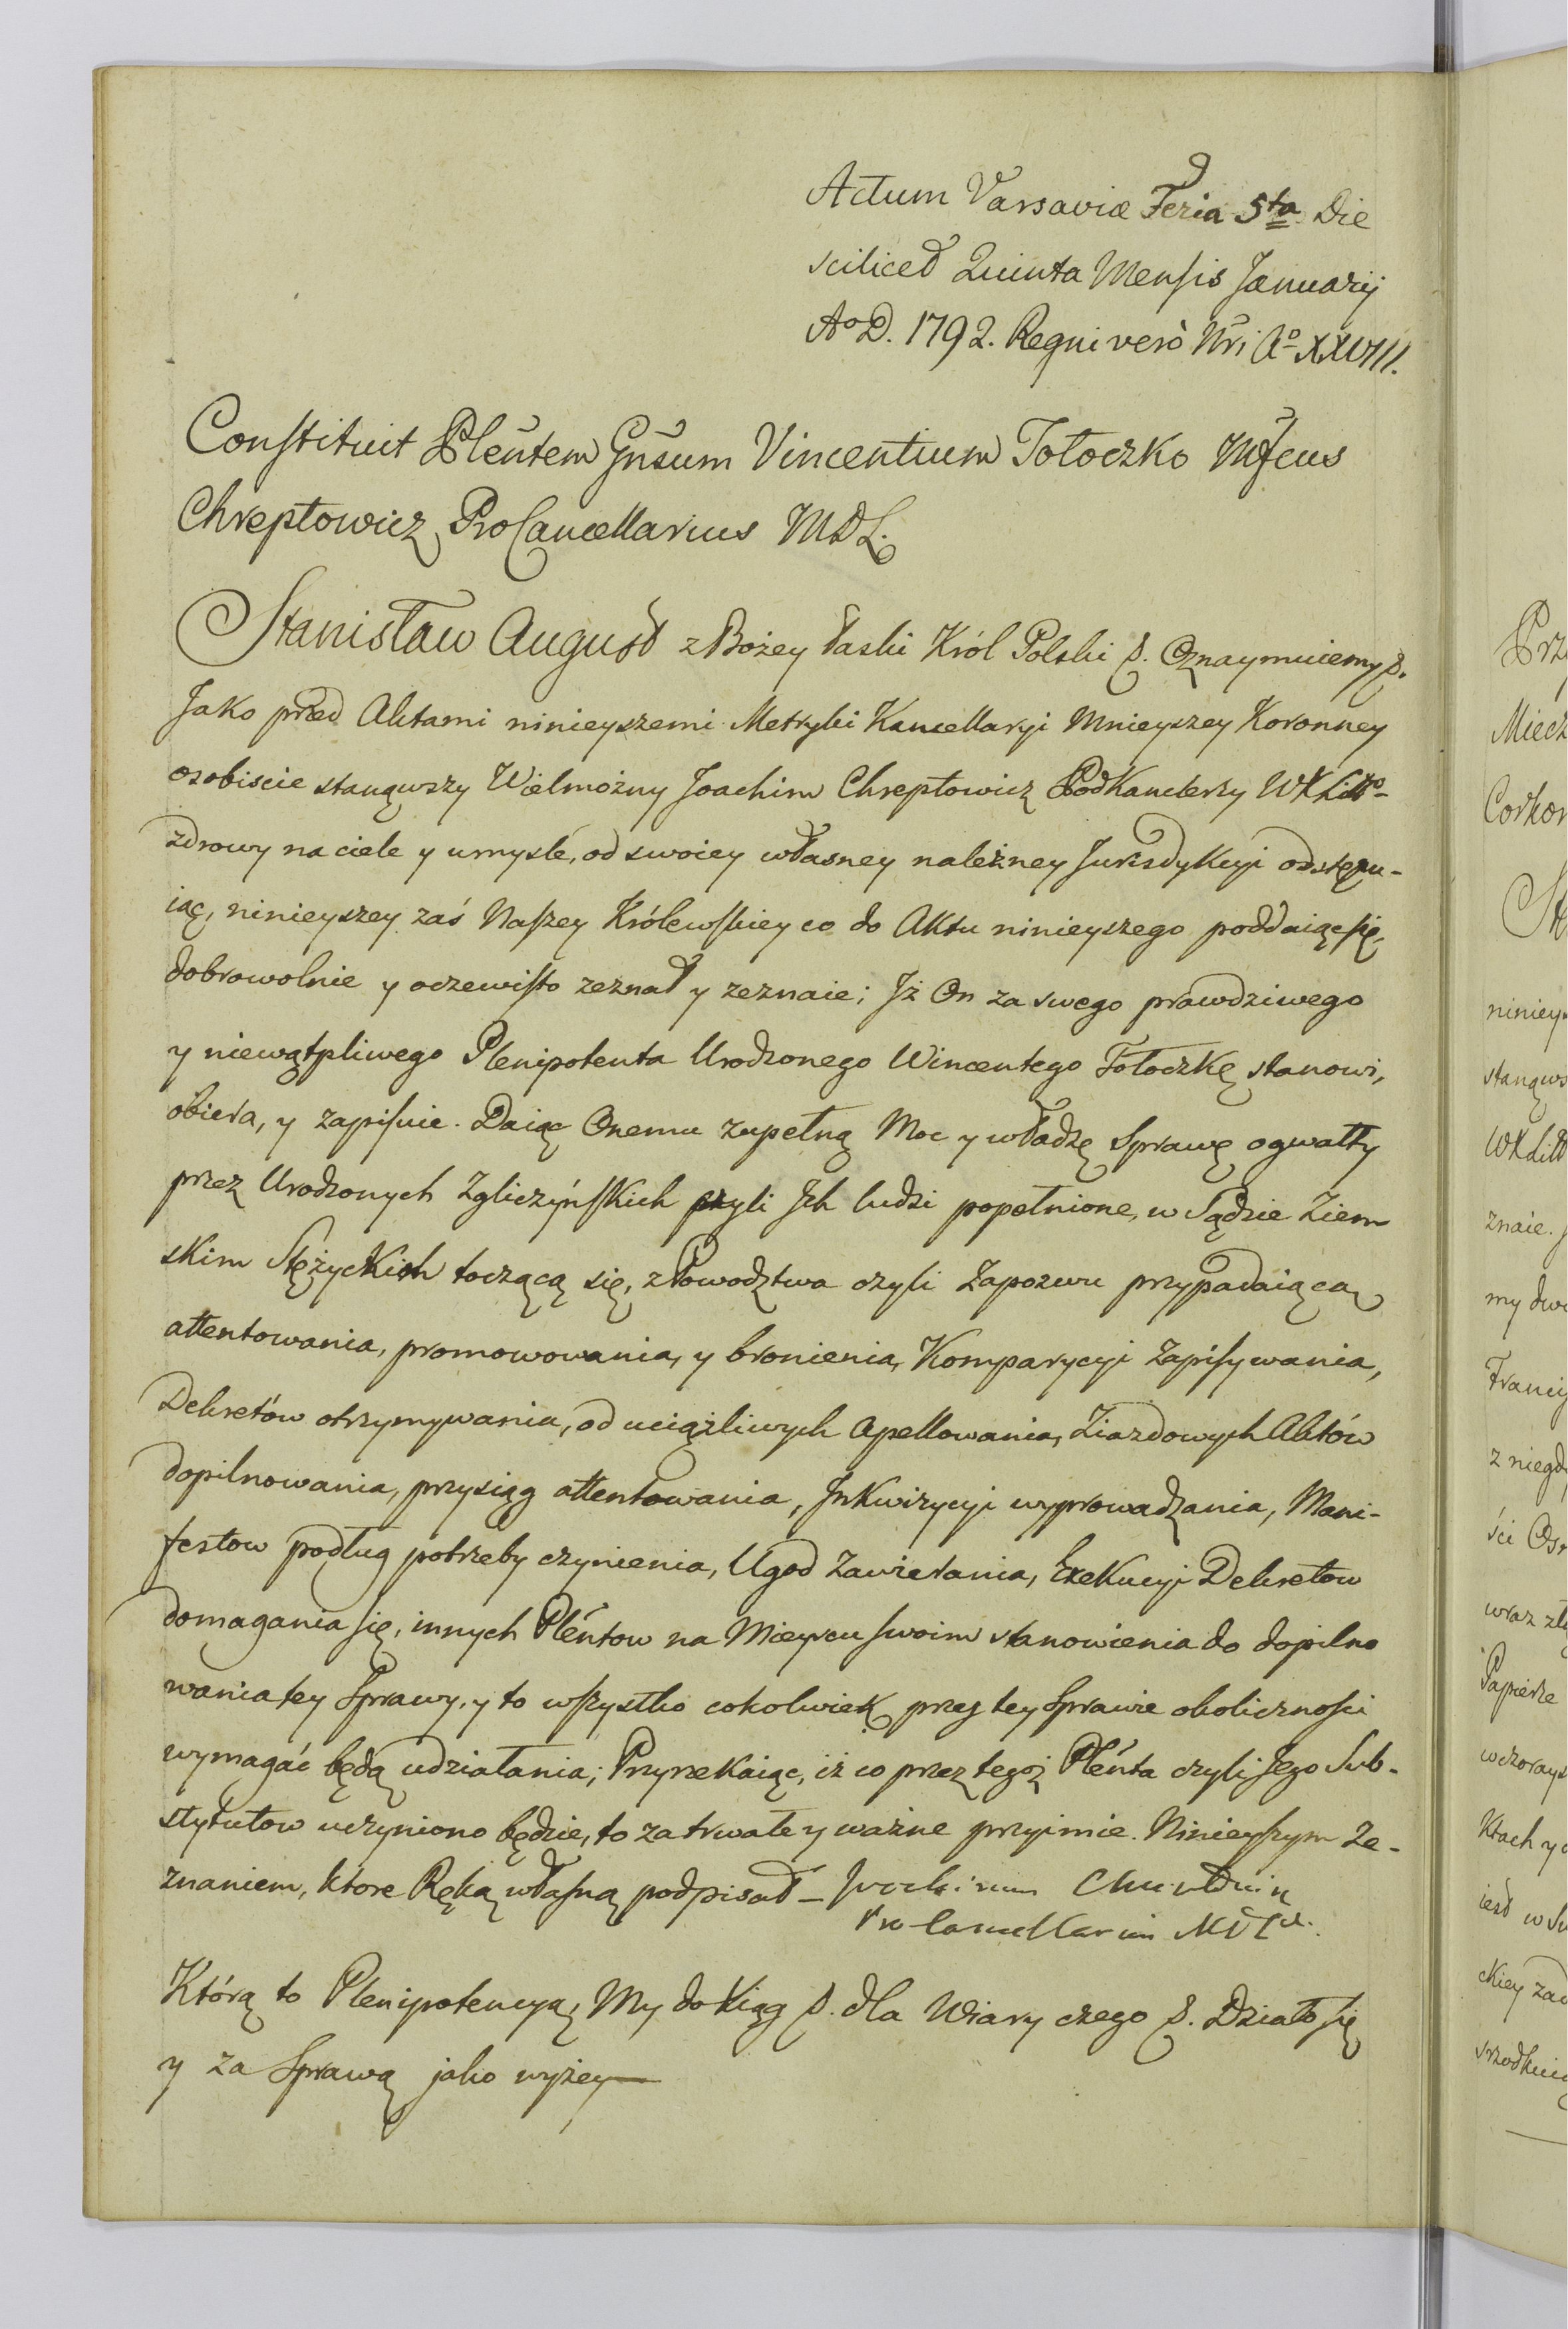 Actum Varsaviæ Feria 5ta Die
scilicet Quinta Mensis Januarij
Ao D. 1792. Regni verò Nri Ao XXVIII.
Constituit Plentem Gnsum Vincentium Tołoczko Mfcus
Chreptowicz ProCancellarius MDL.
Stanisław August z Bożey łaski Król Polski &. Oznaymuiemy &.
Jako przed Aktami ninieyszemi Metryki Kancellaryi Mnieyszey Koronney
osobiscie stanąwszy Wielmożny Joachim Chreptowicz PodKanclerzy WXLitto
zdrowy na ciele y umysle, od swoiey własney należney Jurisdykcyi odstępu-
iąc, ninieyszey zaś Naszey Królewskiey co do Aktu ninieyszego poddaiąc się,
dobrowolnie y oczewisto zeznał y zeznaie; Jż On za swego prawdziwego
y niewątpliwego Plenipotenta Urodzonego Wincentego Tołoczkę stanowi,
obiera, y zapisuie. Daiąc Onemu zupełną Moc y władzę Sprawę o gwałty
przez Urodzonych Zgliczyńskich czyli Jch ludzi popełnione, w Sądzie Ziem
skim Stężyckich toczącą się, z Powodztwa czyli Zapozwu przypadaiącą
attentowania, promowowania, y bronienia, Komparycyi Zapisywania,
Dekretów otrzymywania, od uciążliwych Apellowania, Ziazdowych Aktów
dopilnowania, przysiąg attentowania, Jnkwizycyi wyprowadzania, Mani-
festow podług potrzeby czynienia, Ugod Zawierania, Exekucyi Dekretow
domagania się, innych Plentow na Mieyscu swoim stanowienia do dopilno
wania tey Sprawy, y to wszystko cokolwiek przez tey Sprawie okoliczności
wymagać będą udziałania; Przyrzekaiąc, iż co przez tegoż Plenta czyli Jego Sub-
stytutow uczyniono będzie, to za trwałe y ważne przyimie. Ninieyszym Ze-
znaniem, ktore Ręką własną podpisał –
ProCancellarius
Którą to Plenipotencyą, My do Xiąg &. dla Wiary czego &. Działo się
y za Sprawą jako wyżey —